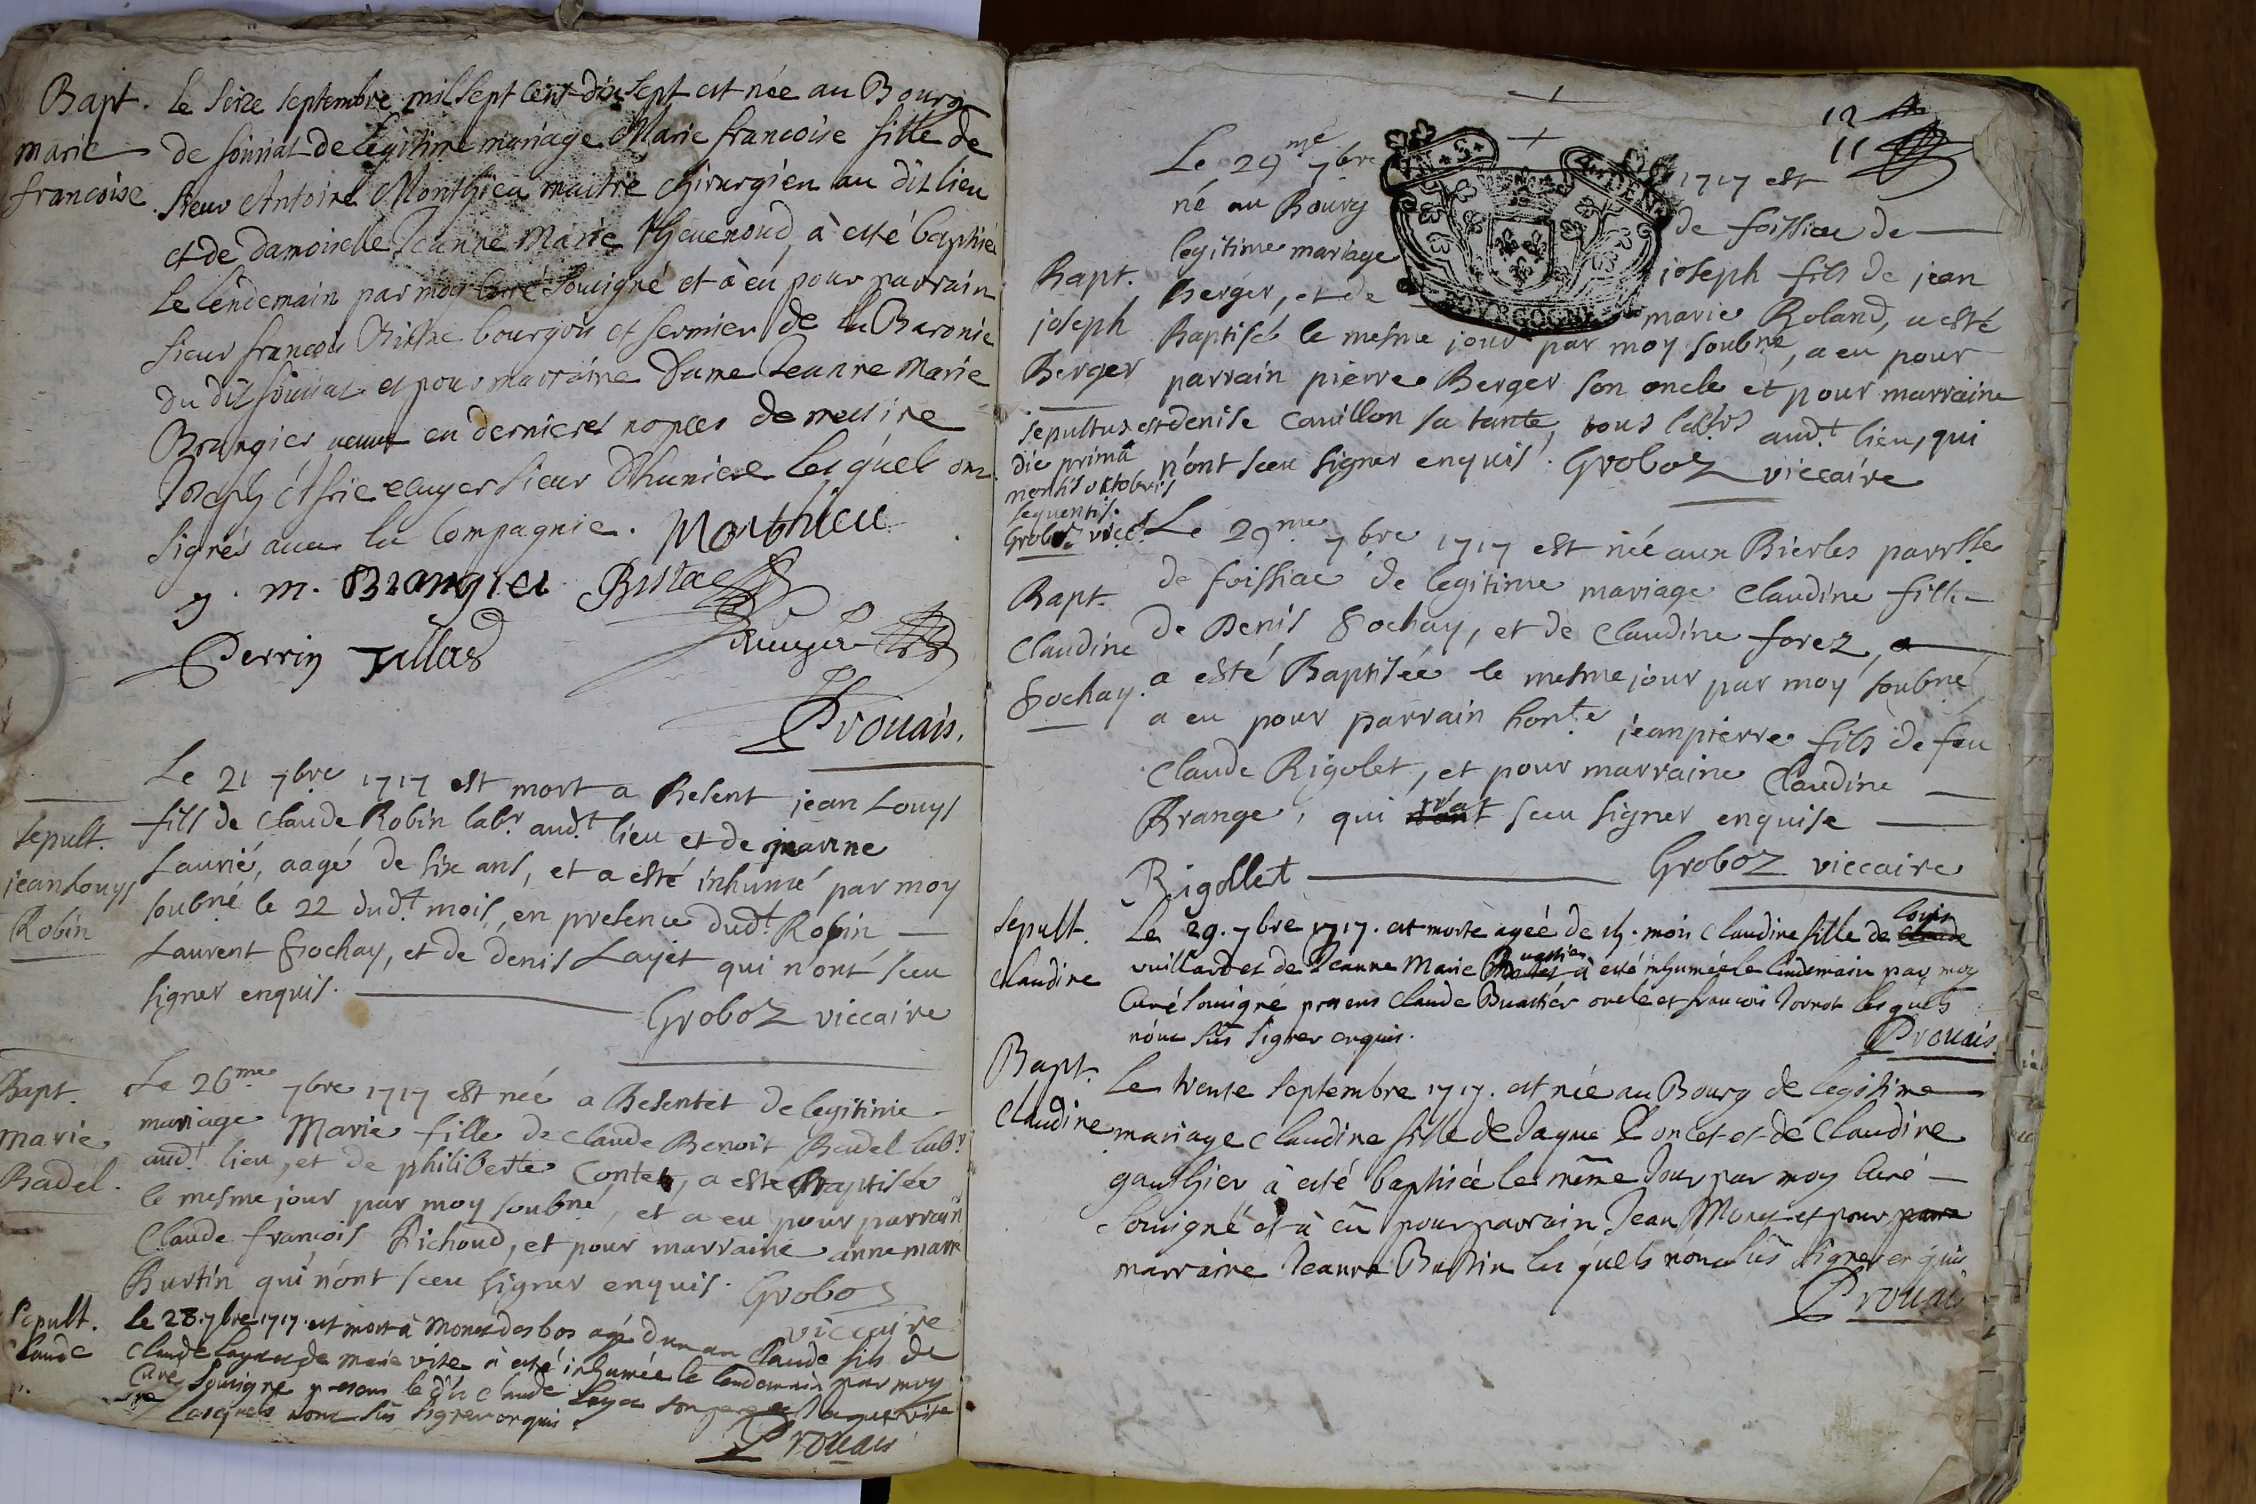 Bapt. le seize septembre mil sept cent dix sept est née au Bourg
marie de foissiat de legitime mariage Marie francoise fille de
francoise sieur Antoine Monthieu maitre chirurgien au dit lieu
et de damoiselle Jeanne Marie à esté baptisée
le lendemain par moy curé souigné et à eu pour parrain
sieur francois bourgois et fermier de la Baronie
du dit foissiat et pour marraine dame Jeanne Marie
Brangier veuve en dernieres nopces de messire
Joseph escuyer sieur lesquels ont
signés avec la Compagnie. Monthieu
J. m. Brangier
Perrin
Provais.
Le 21 7bre 1717 est mort a Besent jean Louys
Sepult. fils de Claude Robin labr. aud.t lieu et de jeanne
jean Louys Laurié, aagé de six ans, et a esté inhumé par moy
Robin soubné le 22 dud.t mois, en presence dud.t Robin
Laurent Gochay, et de Denis Layet qui n'ont sceu
signer enquis. Groboz viccaire
Bapt. Le 26me 7bre 1717 est née a Besentet de legitime
marie mariage Marie fille de Claude Benoit Badel labr
Badel. aud.t lieu, et de philiberte Contet, a esté Baptisée
le mesme jour par moy soubné, et a eu pour parrain
Claude francois Pichoud, et pour marraine anne marie
Burtin qui n'ont sceu signer enquis. Groboz
viccaire
Sepult. le 28. 7bre 1717. est mort à agé d'un an Claude fils de
Claude Claude Layat et de Marie vite à esté inhumée le lendemain par moy
Curé souigné presens le dit Claude Laya son pere et Jaque vite
Lesquels n'ont sus signer enquis.
Provais
12
11
Le 29me 7bre 1717 est
né au Bourg de foissiac de
legitime mariage joseph fils de jean
Bapt. Berger, et de marie Roland, a esté
joseph Baptisé le mesme jour par moy soubné, a eu pour
Berger parrain pierre Berger son oncle et pour marraine
sepultus est denise Cavillon sa tante, tous aud.t lieu, qui
die primâ n'ont sceu signer enquis. Groboz viccaire
mensis oktobris
sequentis.
Groboz vicc.
Le 29me 7bre 1717 est née aux Bierles parrsse
Bapt. de foissiac de legitime mariage Claudine fille
Claudine de Denis Gochay, et de Claudine forez, a
Gochay. a esté Baptisée le mesme jour par moy soubné
a eu pour parrain hon.te jeanpierre fils de feu
Claude Rigolet, et pour marraine Claudine
Brange, qui n'a sceu signer enquise
Rigollet Groboz viccaire
Sepult. Le 29. 7bre 1717. est morte agée de 15. mois Claudine fille de Louis
Claudine vuillard et de Jeanne Marie Buattier à esté inhumée le lendemain par moy
Curé souigné presens Claude Buattier oncle et francois Jornot lesquels
n'ont sus signer enquis. Provais.
Bapt. Le trente septembre 1717. est née au Bourg de legitime
Claudine mariage Claudine fille de Jaque Poncet et de Claudine
gauthier à esté baptisée le même Jour par moy Curé
souigné et à eu pour parrain Jean Monet et pour parra
marraine Jeanne Burtin lesquels n'ont sus signer enquis
Provais